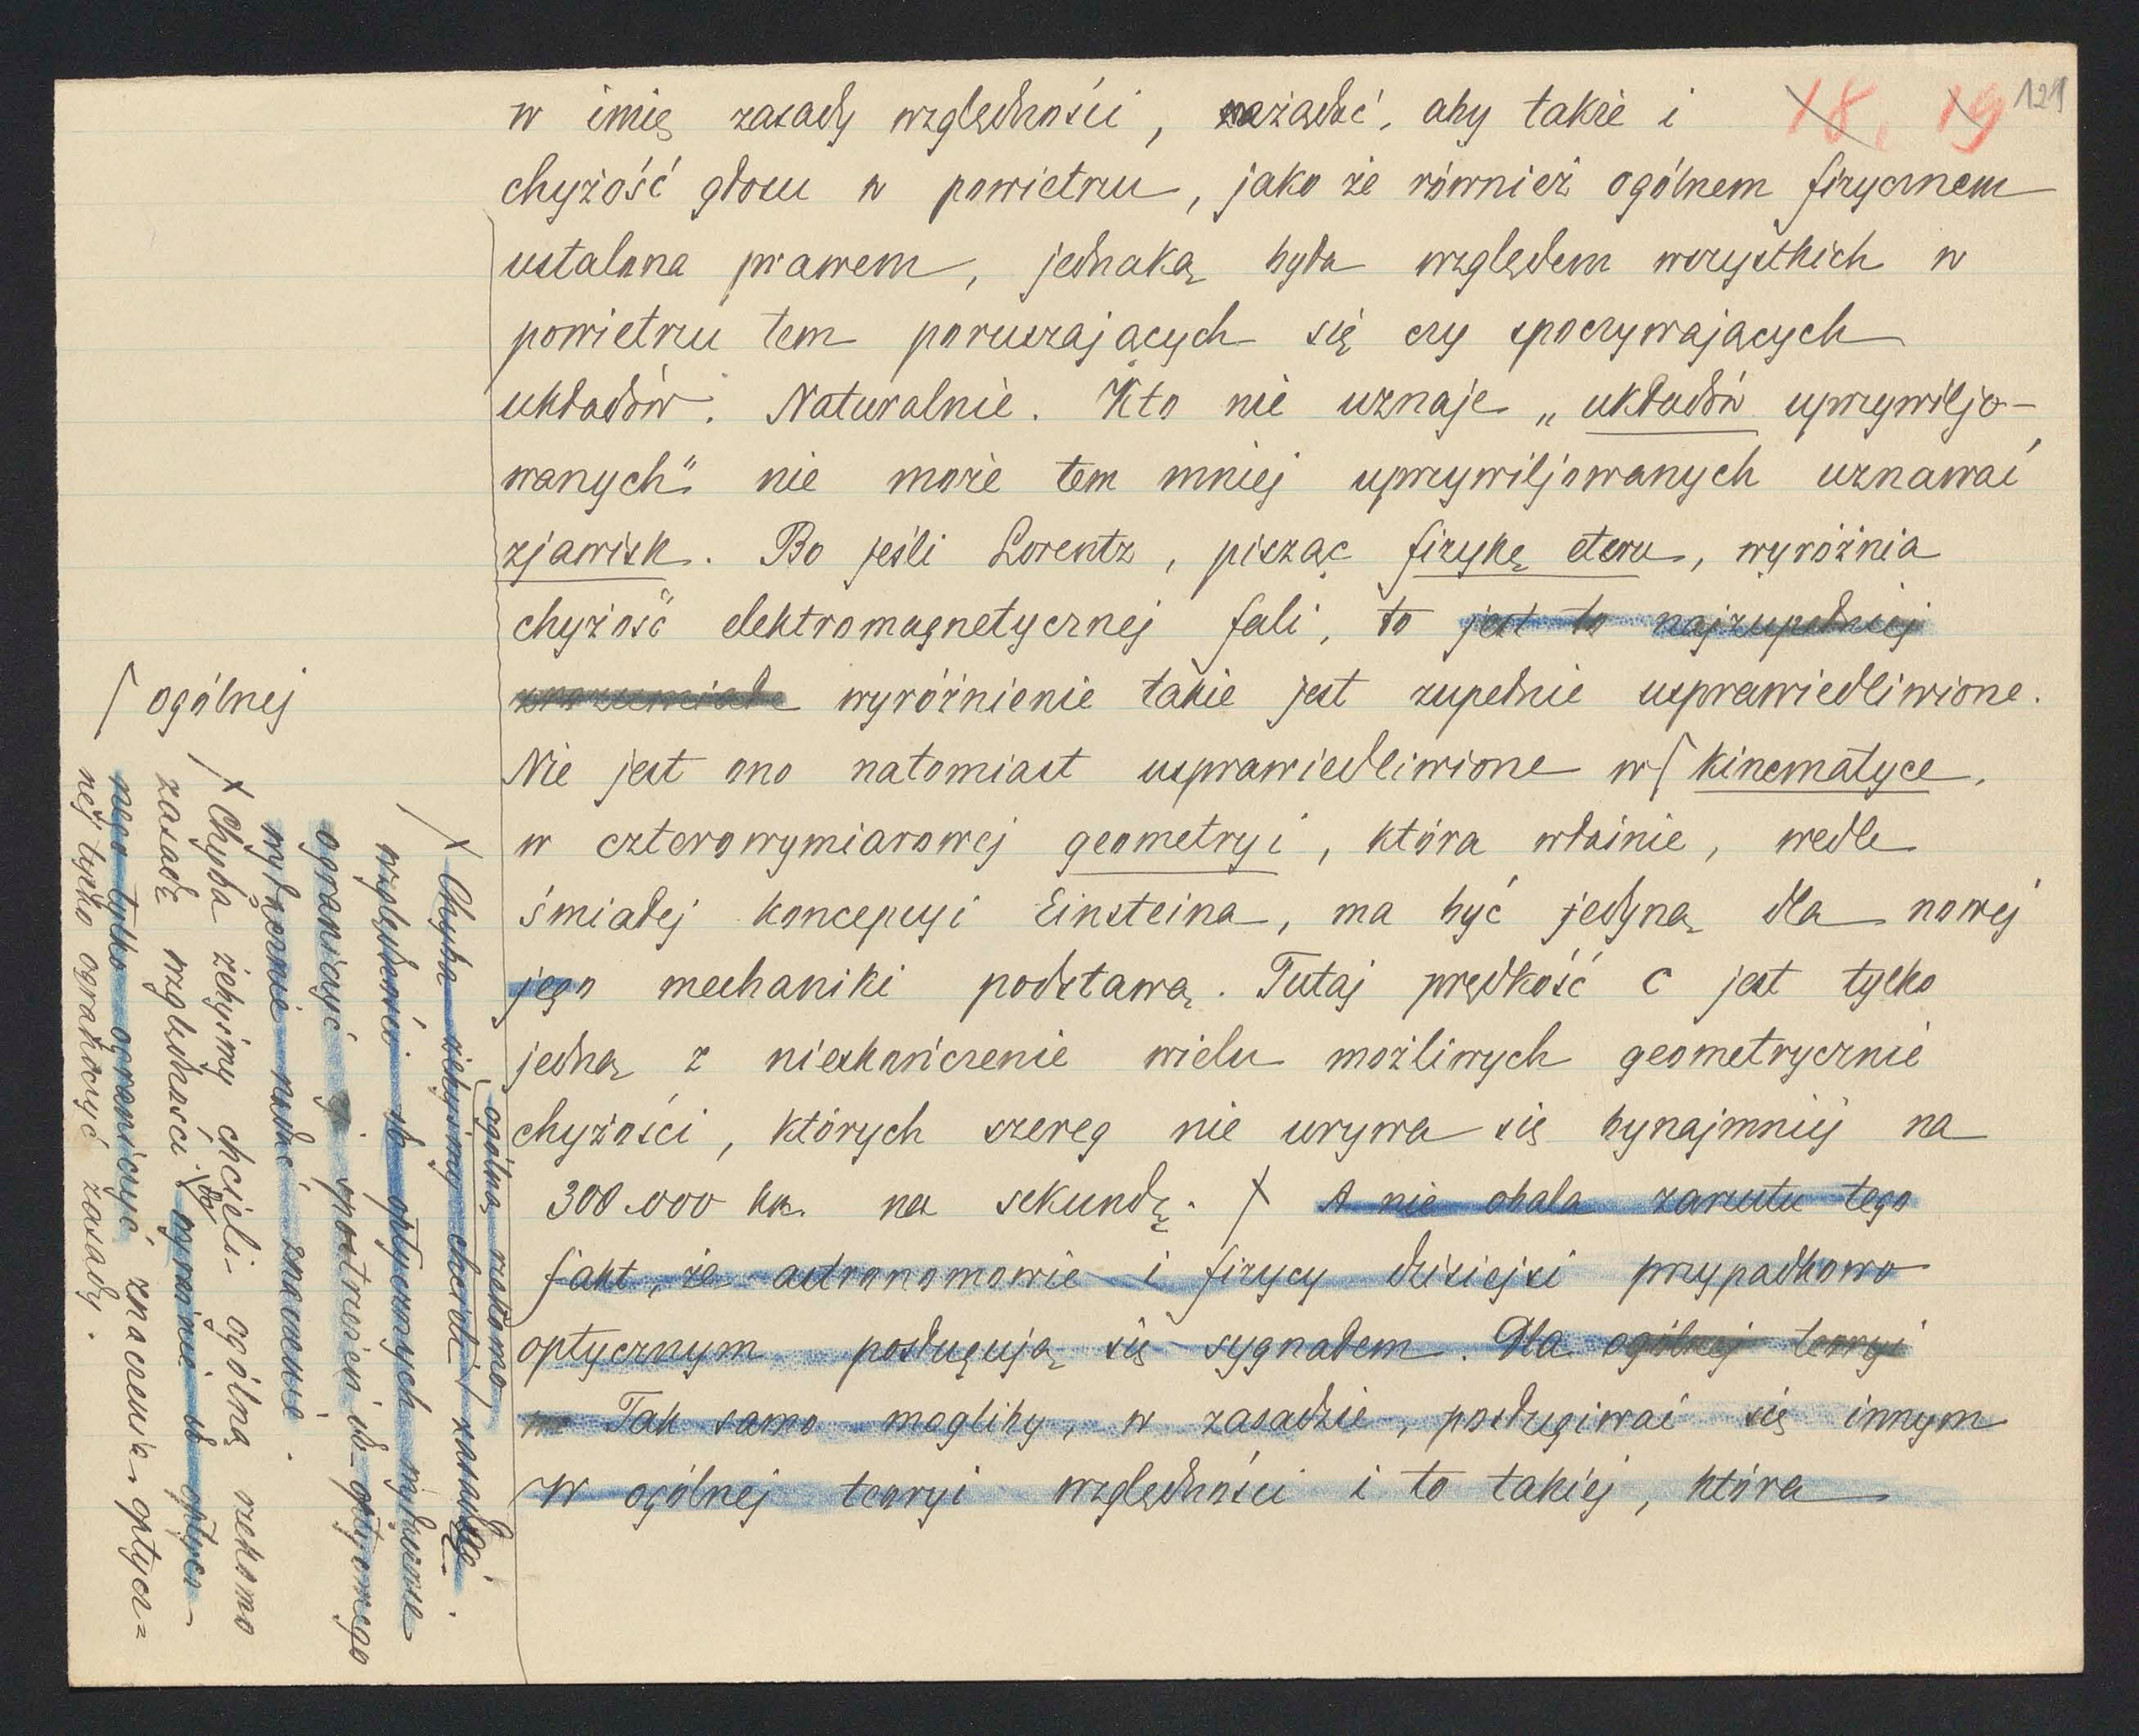 18, 19 121
w imię zasady względności, zażądać, aby także i
chyżość głosu w powietrzu, jako że również ogólnem fizycznem
ustalona prawem, jednaką była względem wszystkich w
powietrzu tem poruszających się czy spoczywających
układów. Naturalnie. Kto nie uznaje „układów uprzywiljo-
wanych" nie może tem mniej uprzywiljowanych uznawać
zjawisk. Bo jeśli Lorentz, pisząc fizykę eteru, wyróżnia
chyżość elektromagnetycznej fali, to jest to najzupełniej
zrozumiałe wyróżnienie takie jest zupełnie usprawiedliwione.
Nie jest ono natomiast usprawiedliwione w ⌈ kinematyce,
w czterowymiarowej geometryi, która właśnie, wedle
śmiałej koncepcyi Einsteina, ma być jedyną dla nowej
jego mechaniki podstawą. Tutaj prędkość c jest tylko
jedną z nieskończenie wielu możliwych geometrycznie
chyżości, których szereg nie urywa się bynajmniej na
300.000 km. na sekundę. ⨯ A nie obala zarzutu tego
fakt, że astronomowie i fizycy dzisiejsi przypadkowo
optycznym posługują się sygnałem. Dla ogólnej teoryi
Tak samo mogliby, w zasadzie, posługiwać się innym
W ogólnej teoryi względności i to takiej, która
⌈ ogólnej
ogólną rzekomo
⨯ Chyba żebyśmy chcieli zasadę
względności do optycznych wyłącznie
ograniczyć przestrzeni i do optycznego
wyłącznie nadać znaczenie.
⨯ Chyba żebyśmy chcieli ogólną rzekomo
zasadę względności do wyłącznie do optycz-
nego tylko ograniczyć znaczenia optycz=
nej tylko ograniczyć zasady.